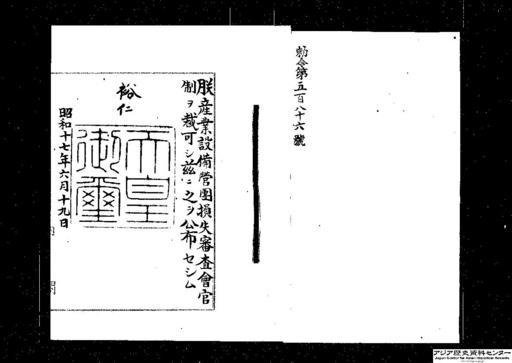 勅令第五百八十六號
朕産業設備營團損失審査會官
制ヲ裁可シ茲ニ之ヲ公布セシム
裕仁
天皇
御璽
昭和十七年六月十九日
アジア歴史資料センター
Japan Center for Asian Historical Records